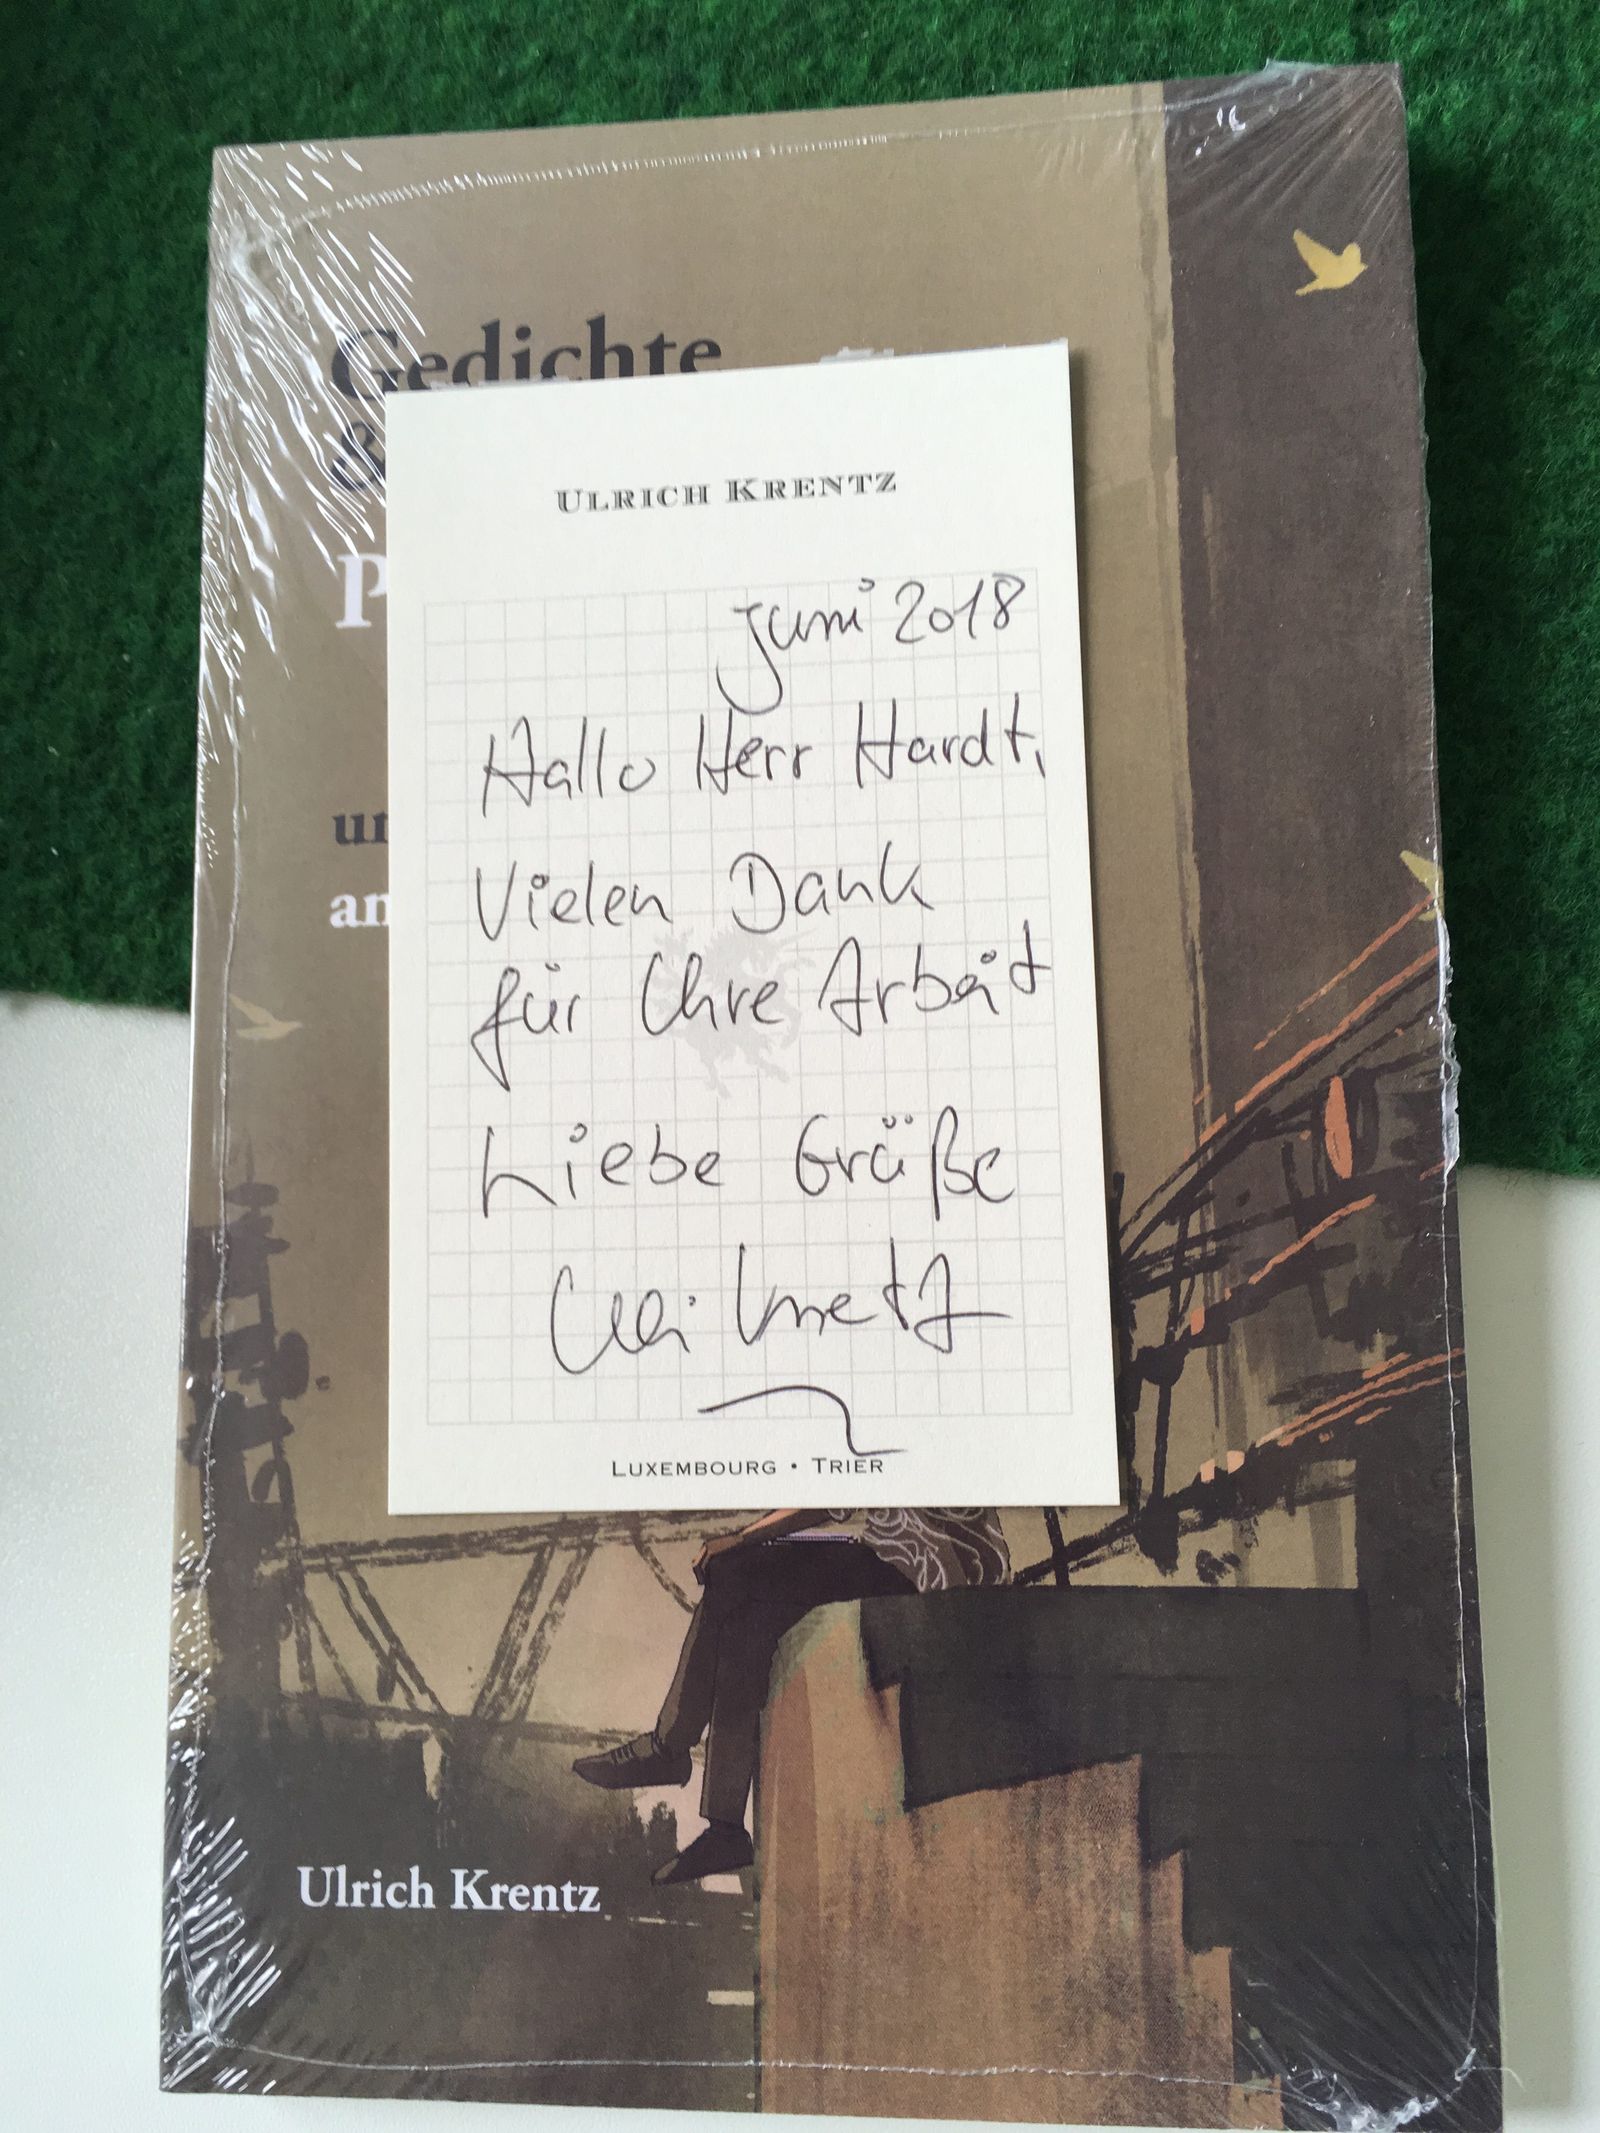 Gedichte
&
P
un
an
ULRICH KRENTZ
Juni 2018
Hallo Herr Hardt,
Vielen Dank
für Ihre Arbeit
Liebe Grüße
Uli Krentz
LUXEMBOURG • TRIER
Ulrich Krentz